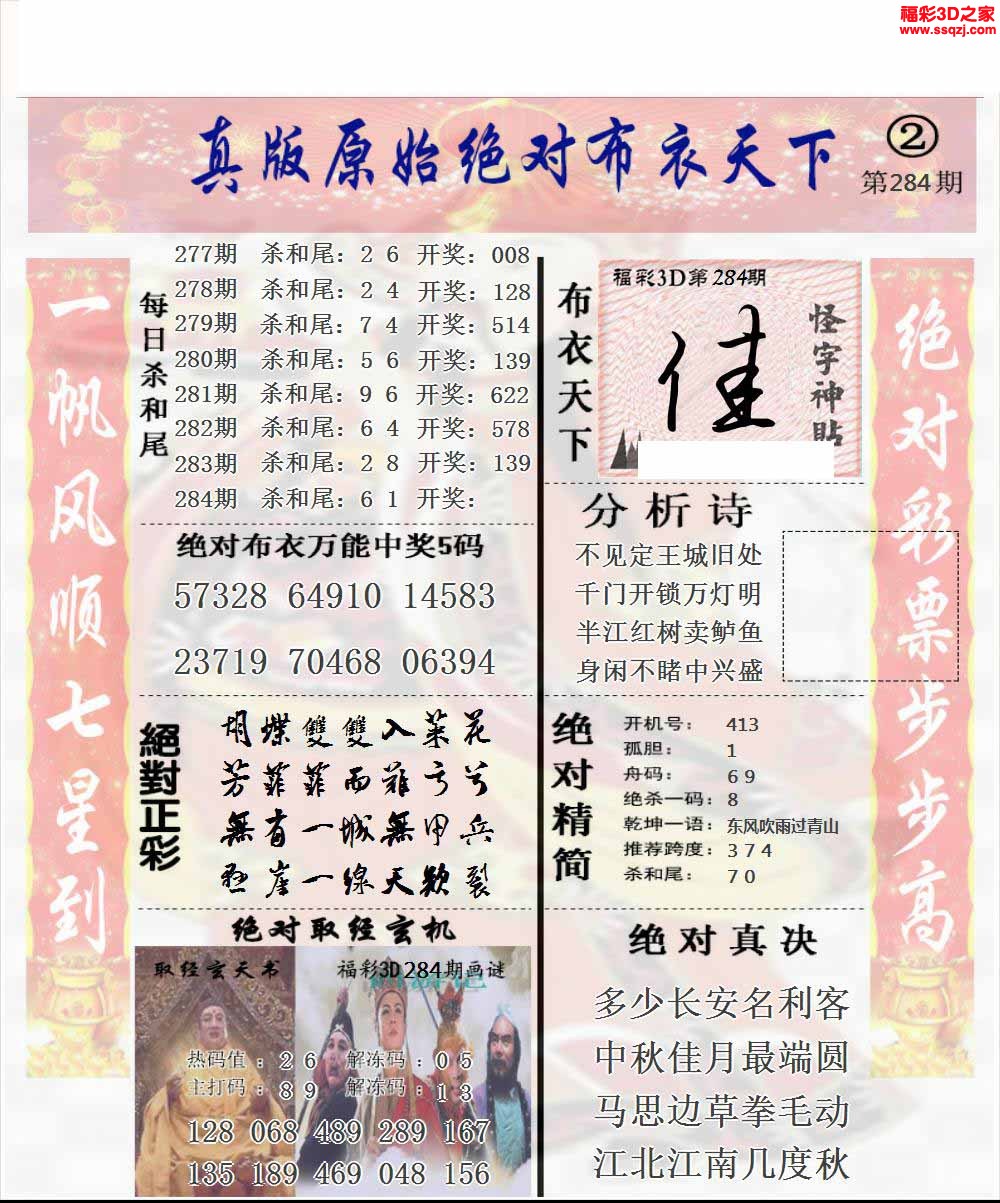 福彩3D之家
www.ssqzj.com
真版原始绝对布衣天下
②
第284期
一帆风顺七星到
绝对彩票步步高
每日杀和尾
277期 杀和尾：2 6 开奖：008
278期 杀和尾：2 4 开奖：128
279期 杀和尾：7 4 开奖：514
280期 杀和尾：5 6 开奖：139
281期 杀和尾：9 6 开奖：622
282期 杀和尾：6 4 开奖：578
283期 杀和尾：2 8 开奖：139
284期 杀和尾：6 1 开奖：
绝对布衣万能中奖5码
57328 64910 14583
23719 70468 06394
絕對正彩
胡蝶雙雙入菜花
芳菲菲而難亏兮
無有一城無甲兵
一線天欲裂
绝对取经玄机
取经玄天书
福彩3D284期画谜
热码值：2 6 解冻码：0 5
主打码：8 9 解冻码：1 3
128 068 489 289 167
135 189 469 048 156
布衣天下
福彩3D第284期
佳
怪字神贴
分析诗
不见定王城旧处
千门开锁万灯明
半江红树卖鲈鱼
身闲不睹中兴盛
绝对精简
开机号：413
孤胆：1
舟码：6 9
绝杀一码：8
乾坤一语：东风吹雨过青山
推荐跨度：3 7 4
杀和尾：7 0
绝对真决
多少长安名利客
中秋佳月最端圆
马思边草拳毛动
江北江南几度秋